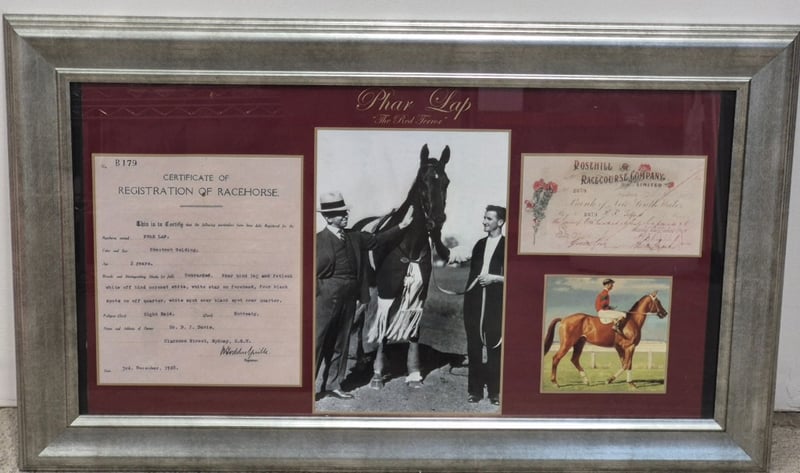 Phar Lap
"The Red Terror"
No. B179
CERTIFICATE OF
REGISTRATION OF RACEHORSE.
This is to Certify that the following particulars have been duly Registered for the
Racehorse named PHAR LAP.
Colour and Sex Chestnut Gelding.
Age 2 years.
Brands and Distinguishing Marks (in full) Unbranded. Near hind leg and fetlock
white off hind coronet white, white star on forehead, four black
spots on off quarter, white spot near black spot near quarter.
Night Raid. Entreaty.
Name and Address of Owner Mr. D. J. Davis,
Clarence Street, Sydney, N.S.W.
Registrar.
Date 3rd. December, 1928.
ROSEHILL
RACECOURSE COMPANY,
LIMITED
2879
Bank of New South Wales
2879